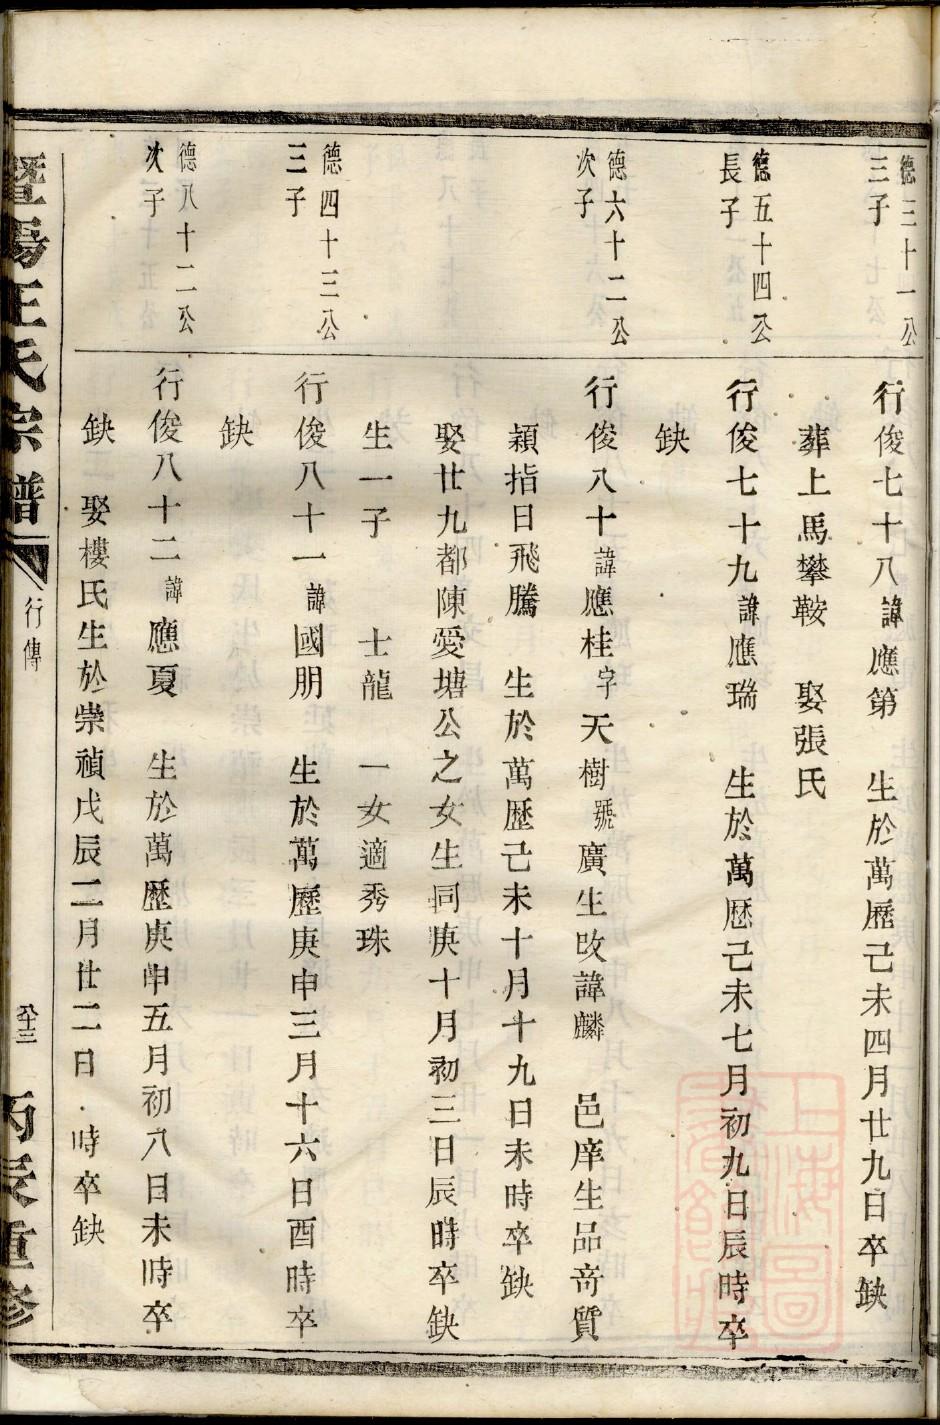 德三十一公
三子
行俊七十八諱應第　生於萬歷己未四月廿九日卒缺
葬上馬攀鞍　娶張氏
德五十四公
長子
行俊七十九諱應瑞　生於萬歷己未七月初九日辰時卒
缺
德六十二公
次子
行俊八十諱應桂字天樹號廣生改諱麟　邑庠生品奇質
穎指日飛騰　生於萬歷己未十月十九日未時卒缺
娶廿九都陳愛塘公之女生同庚十月初三日辰時卒缺
生一子　士龍　一女適秀珠
德四十三公
三子
行俊八十一諱國朋　生於萬歷庚申三月十六日酉時卒
缺
德八十二公
次子
行俊八十二諱應夏　生於萬歷庚申五月初八日未時卒
缺　娶樓氏生於崇禎戊辰二月廿二日　時卒缺
暨陽王氏宗譜
行傳
丙辰重修